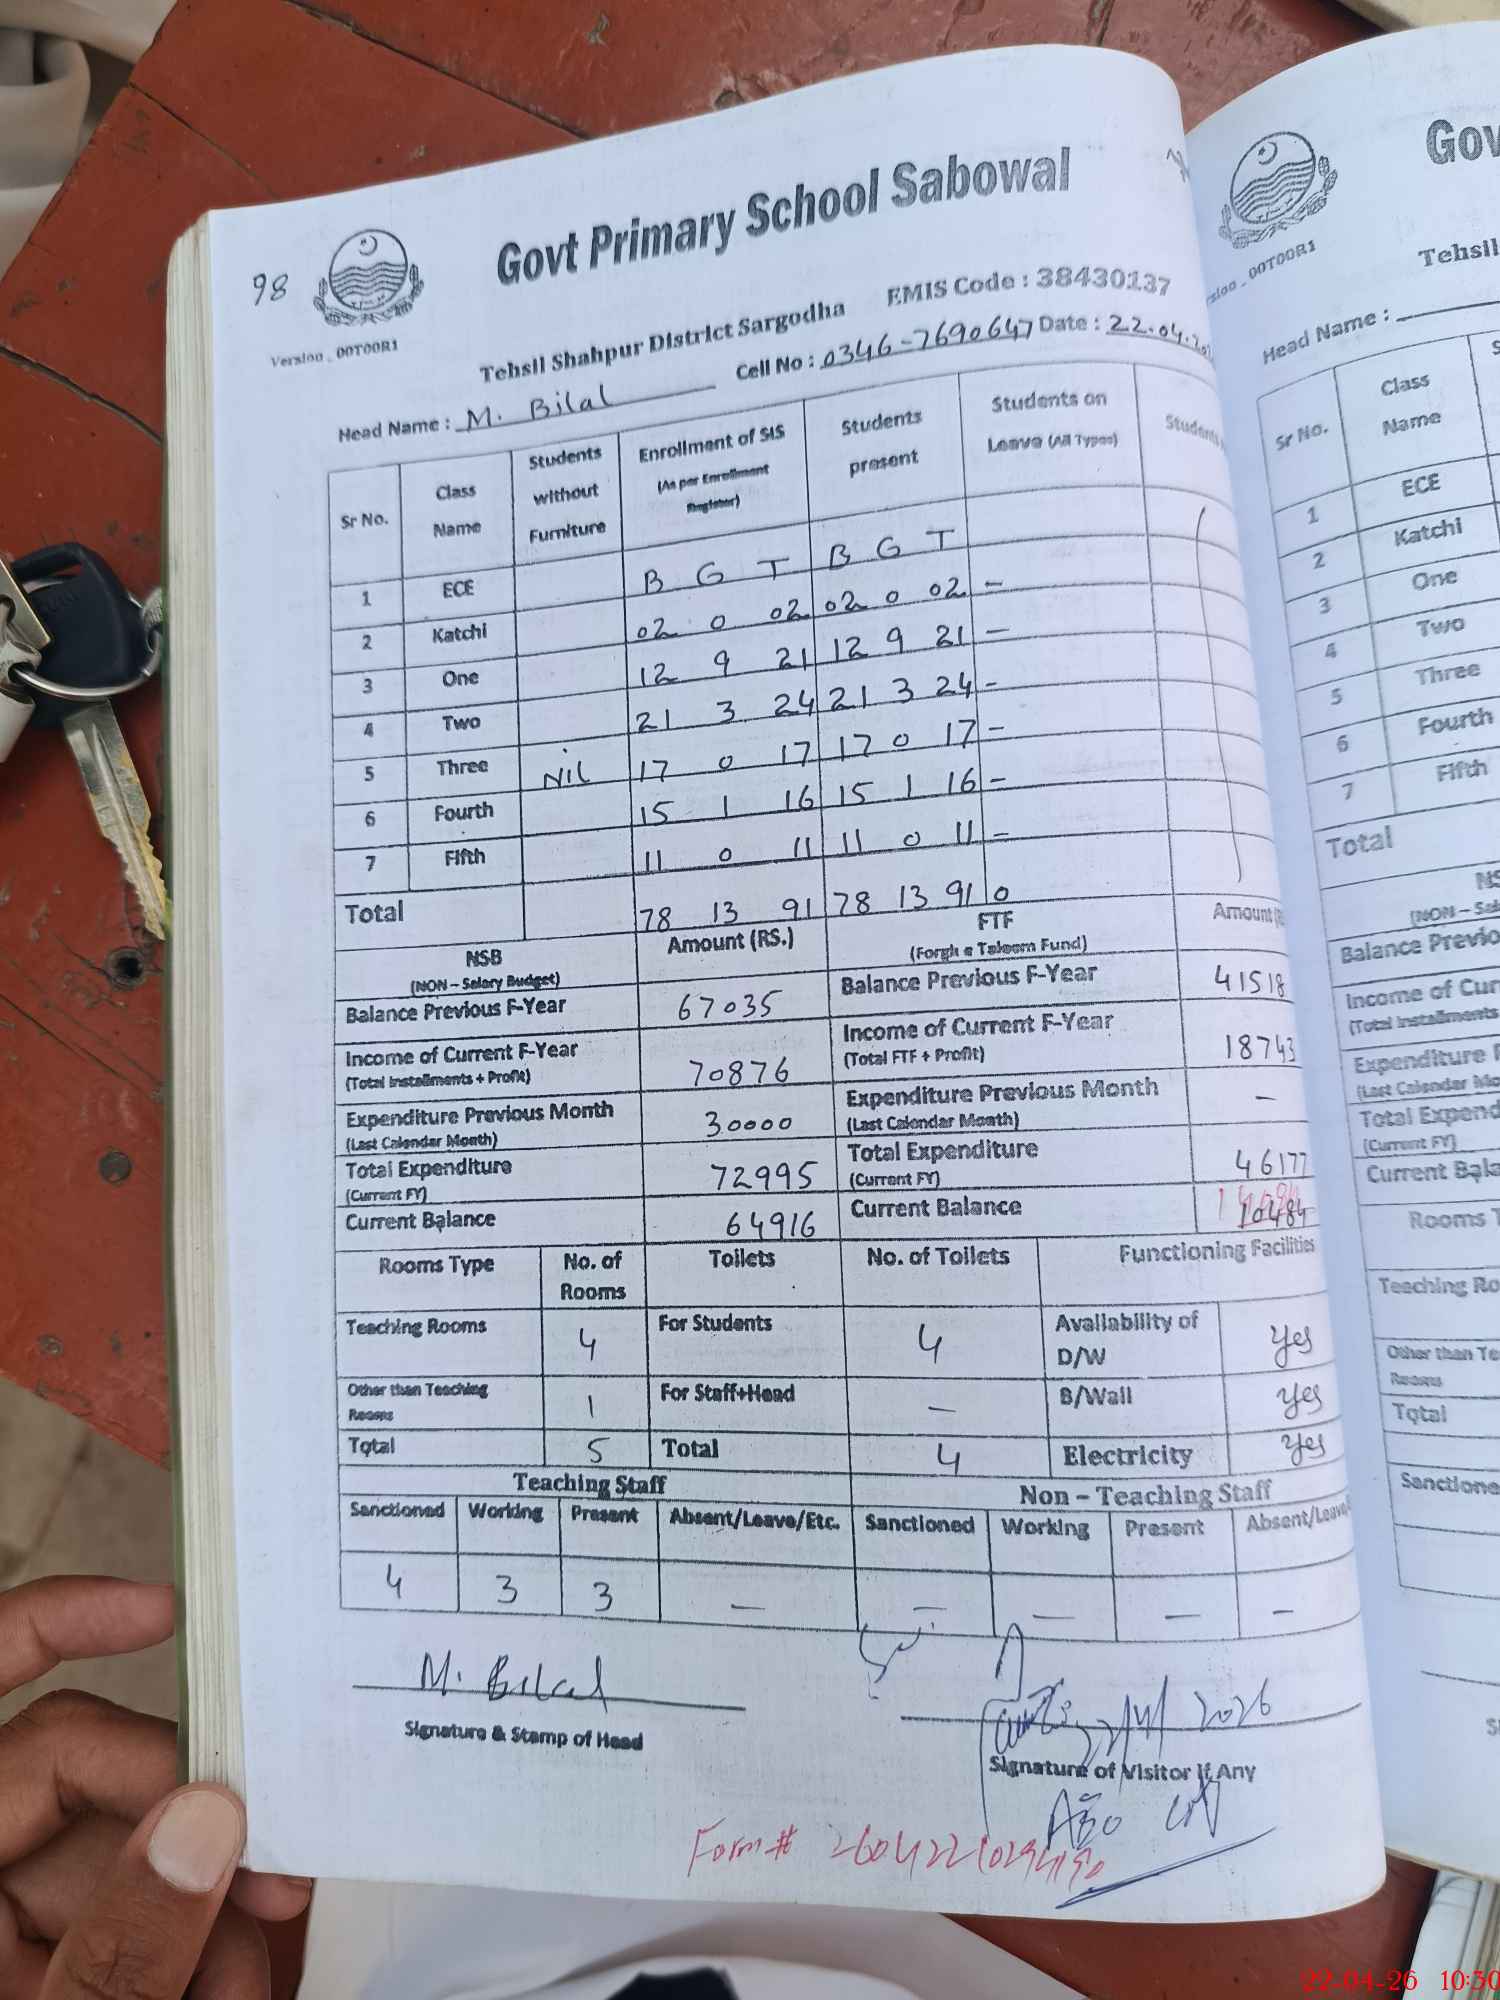 Govt Primary School Sabowal
98
Version _ 00T00R1
Tehsil Shahpur District Sargodha EMIS Code : 38430137
Head Name : M. Bilal Cell No : 0346-7690647 Date : 22.04.20
Sr No. Class Name Students without Furniture Enrollment of SIS (As per Enrollment Register) Students present Students on Leave (All Types) Students
1 ECE B G T B G T
2 Katchi 02 0 02 02 0 02 -
3 One 12 9 21 12 9 21 -
4 Two 21 3 24 21 3 24 -
5 Three Nil 17 0 17 17 0 17 -
6 Fourth 15 1 16 15 1 16 -
7 Fifth 11 0 11 11 0 11 -
Total 78 13 91 78 13 91 0
NSB (NON – Salary Budget) Amount (RS.) FTF (Forgh e Taleem Fund) Amount
Balance Previous F-Year 67035 Balance Previous F-Year 41518
Income of Current F-Year (Total Installments + Profit) 70876 Income of Current F-Year (Total FTF + Profit) 18743
Expenditure Previous Month (Last Calendar Month) 30000 Expenditure Previous Month (Last Calendar Month) -
Total Expenditure (Current FY) 72995 Total Expenditure (Current FY) 46177
Current Balance 64916 Current Balance
Rooms Type No. of Rooms Toilets No. of Toilets Functioning Facilities
Teaching Rooms 4 For Students 4 Availability of D/W Yes
Other than Teaching Rooms 1 For Staff+Head - B/Wall Yes
Total 5 Total 4 Electricity Yes
Teaching Staff Non – Teaching Staff
Sanctioned Working Present Absent/Leave/Etc. Sanctioned Working Present Absent/Leave
4 3 3 - - - - -
M. Bilal
Signature & Stamp of Head
2026
Signature of Visitor If Any
Form #
Gov
Version _ 00T00R1
Tehsil
Head Name :
Sr No. Class Name
1 ECE
2 Katchi
3 One
4 Two
5 Three
6 Fourth
7 Fifth
Total
NS
(NON – Sala
Balance Previo
Income of Cur
(Total Installments
Expenditure P
(Last Calendar Mo
Total Expend
(Current FY)
Current Bala
Rooms T
Teaching Ro
Other than Te
Rooms
Total
Sanctione
22-04-26 10:30